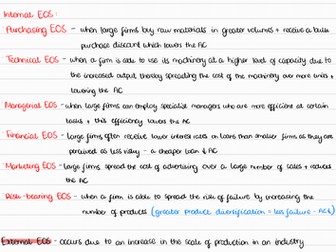 Internal EOS :
Purchasing EOS - when large firms buy raw materials in greater volumes + receive a bulk
purchase discount which lower the AC
Technical EOS - when a firm is able to use its machinery at a higher level of capacity due to
the increased output, thereby spreading the cost of the machinery over more units +
lowering the AC
Managerial EOS - when large firms can employ specialist managers who are more efficient at certain
tasks + this efficiency lowers the AC
Financial EOS - large firms often receive lower interest rates on loans than smaller firms as they are
perceived as less risky - a cheaper loan ↓ AC
Marketing EOS - large firms spread the cost of advertising over a large number of sales + reduce
the AC
Risk-bearing EOS - when a firm is able to spread the risk of failure by increasing the
number of products (greater product diversification = less failure - AC↓)
External EOS - occurs due to an increase in the scale of production in an industry